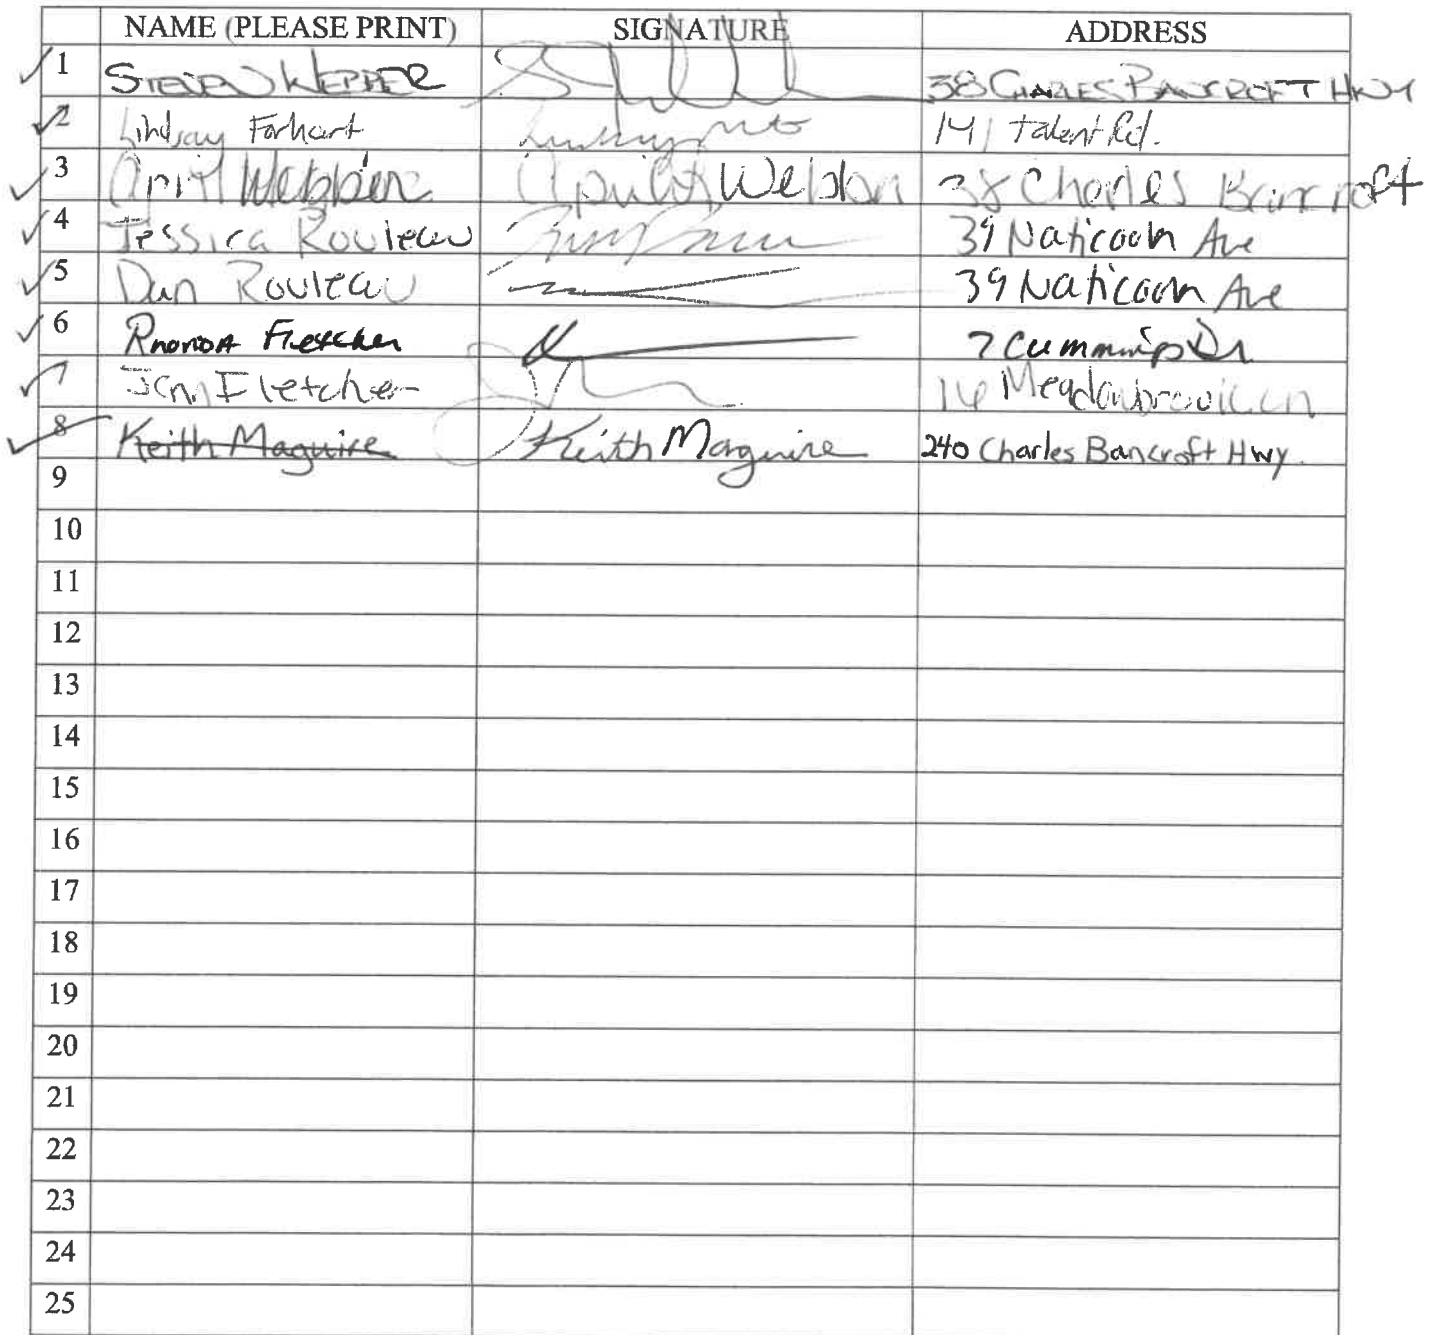 NAME (PLEASE PRINT) SIGNATURE ADDRESS
1 STEVEN WEBBER 38 CHARLES BANCROFT HWY
2 Lindsay Farhart 141 Talent Rd.
3 April Webber April Webber 38 Charles Bancroft
4 Jessica Rouleau 39 Naticook Ave
5 Dan Rouleau 39 Naticook Ave
6 Rhonda Fletcher 7 Cummings Dr
7 Jenn Fletcher 16 Meadowbrook Ln
8 Keith Maguire Keith Maguire 240 Charles Bancroft Hwy.
9
10
11
12
13
14
15
16
17
18
19
20
21
22
23
24
25